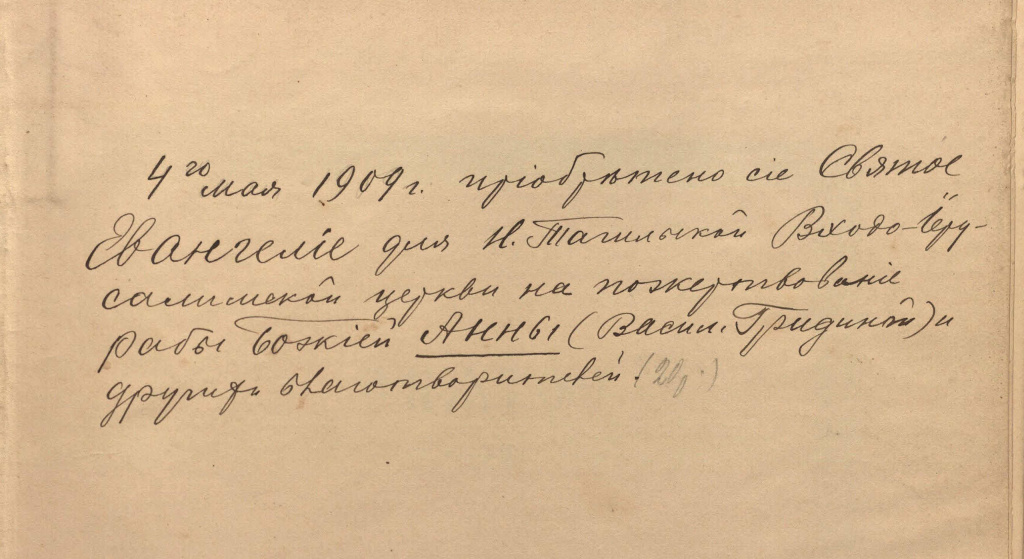 4го мая 1909 г. пріобрѣтено сіе Святое
Евангеліе для Н. Тагильской Входо-Іеру-
салимской церкви на пожертвованіе
рабы Божіей Анны (Васил. Гридиной) и
другихъ благотворителей. (20р.)